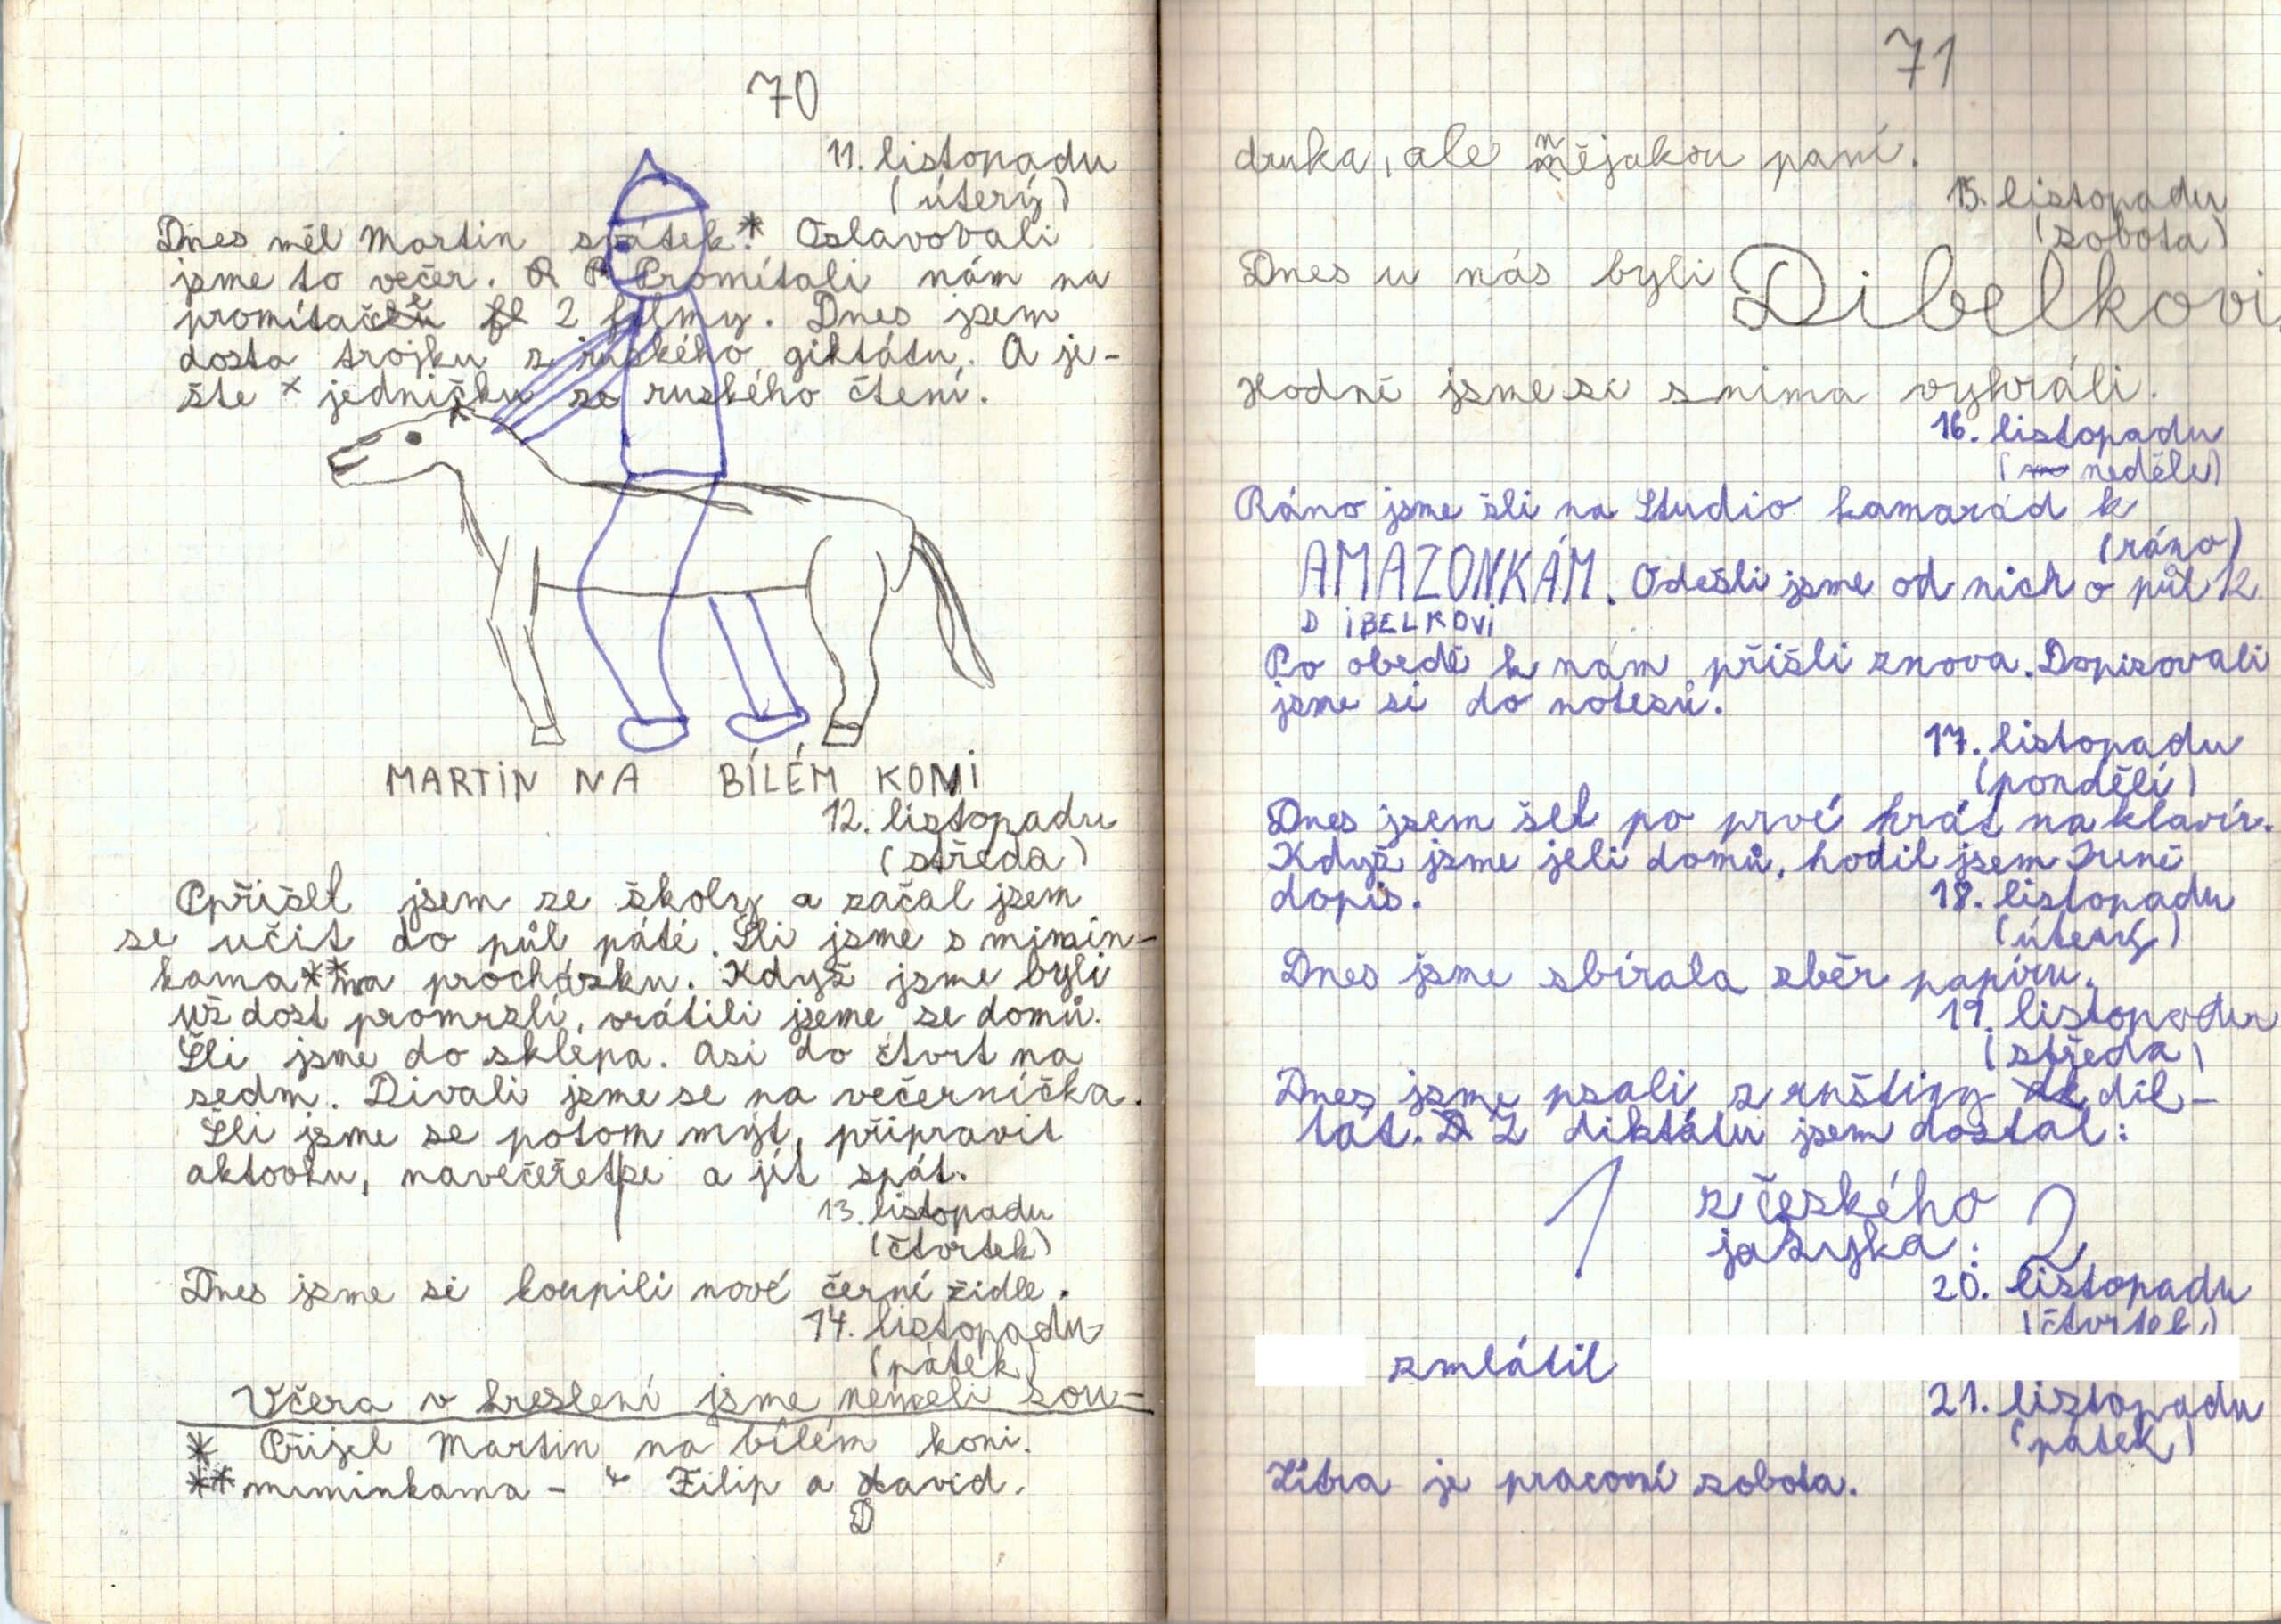 70
11. listopadu
(úterý)
Dnes měl Martin svátek.* Oslavovali
jsme to večer. Promítali nám na
promítačce 2 filmy. Dnes jsem
dosta trojku z ruského giktátu. A je-
ště jedničku ze ruského čtení.
MARTIN NA BÍLÉM KONI
12. listopadu
(středa)
Ppřišel jsem ze školy a začal jsem
se učit do půl páté. Šli jsme s mimin-
kama** na procházku. Když jsme byli
už dost promrzlí, vrátili jseme se domů.
Šli jsme do sklepa. Asi do čtvrt na
sedm. Divali jsme se na večerníčka.
Šli jsme se potom mýt, připravit
aktovku, navečeřet se a jít spát.
13. listopadu
(čtvrtek)
Dnes jsme si koupili nové černé židle.
14. listopadu
(pátek)
Včera v kreslení jsme neměli sou-
* Přijel Martin na bílém koni.
** miminkama - Filip a David.
71
druka, ale nějakou paní.
15. listopadu
(sobota)
Dnes u nás byli Dibelkovi.
Hodně jsme si s nima vyhráli.
16. listopadu
(neděle)
Ráno jsme šli na Studio kamarád k
(ráno)
AMAZONKÁM. Odešli jsme od nich o půl 12.
DIBELKOVI
Po obědě k nám přišli znova. Dopisovali
jsme si do notesů.
17. listopadu
(pondělí)
Dnes jsem šel po prvé hrát na klavír.
Když jsme jeli domů, hodil jsem Ireně
dopis.
18. listopadu
(úterý)
Dnes jsme sbírala sběr papíru.
19. listopadu
(středa)
Dnes jsme psali z ruštiny dik-
tát. Z diktátu jsem dostal:
1 z českého
jazyka: 2
20. listopadu
(čtvrtek)
zmlátil
21. listopadu
(pátek)
Zítra je pracovní sobota.